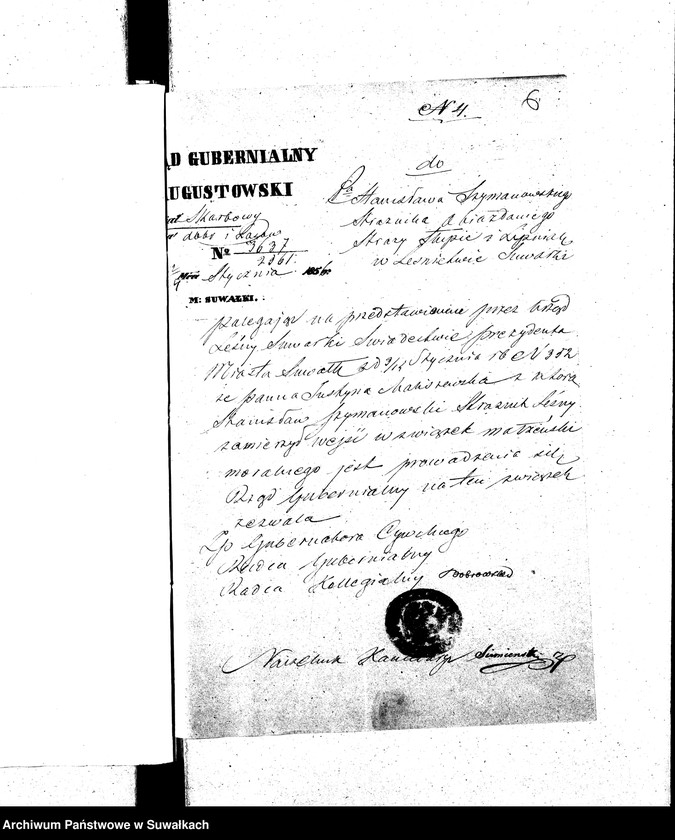 N 4.
6
ĄD GUBERNIALNY
AUGUSTOWSKI
Skarbowy
dóbr i Lasów
№ 3637
2361
Stycznia 1856 r.
M: SUWAŁKI.
do
Pa Stanisława Szymanowskiego
Strażnika Objazdowego
Straży
w Leśnictwie Suwałki
polegając na przedstawionem przez Urząd
Leśny Suwałki Świadectwie prezydenta
Miasta Suwałk z d 3/15 Stycznia rb N 352
że panna Justyna Makowska z którą
Stanisław Szymanowski Strażnik Leśny
zamierzył wejść w związek małżeński
moralnego jest prowadzenia się,
Rząd Gubernialny na ten związek
zezwala
Zp Gubernatora Cywilnego
Radca Gubernialny
Radca Kollegialny Dobrowolski
Naczelnik Kancelaryi
Archiwum Państwowe w Suwałkach